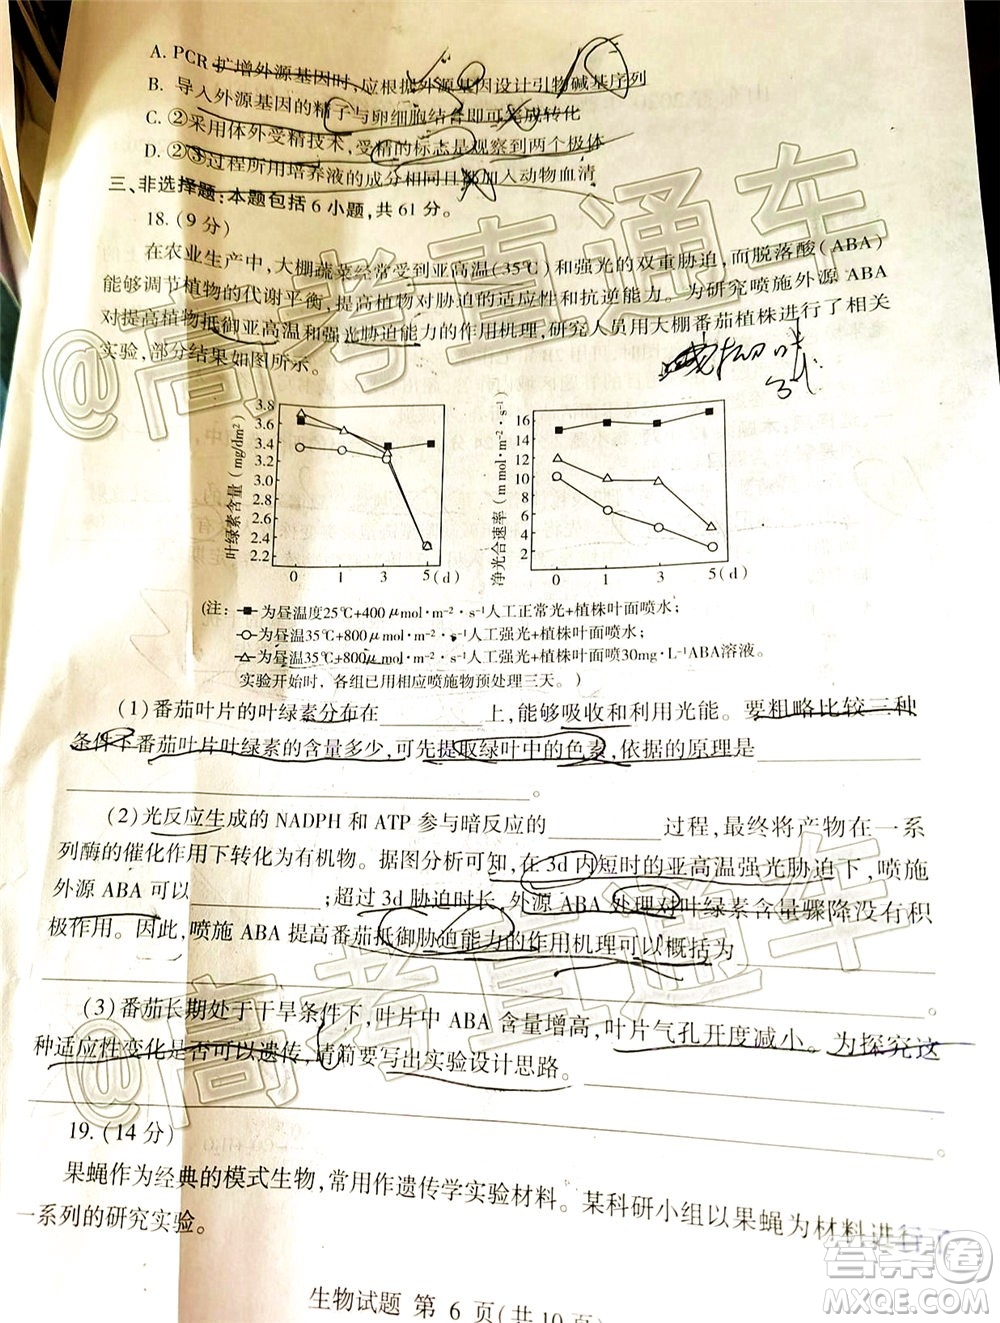 A. PCR 扩增外源基因时,应根据外源基因设计引物碱基序列
B. 导入外源基因的精子与卵细胞结合即可完成转化
C. ②采用体外受精技术,受精的标志是观察到两个极体
D. ②③过程所用培养液的成分相同且都加入动物血清
三、非选择题:本题包括6小题,共61分。
18. (9分)
在农业生产中,大棚蔬菜经常受到亚高温(35℃)和强光的双重胁迫,而脱落酸(ABA)
能够调节植物的代谢平衡,提高植物对胁迫的适应性和抗逆能力。为研究喷施外源 ABA
对提高植物抵御亚高温和强光胁迫能力的作用机理,研究人员用大棚番茄植株进行了相关
实验,部分结果如图所示。
叶绿素含量(mg/dm²)
3.8
3.6
3.4
3.2
3.0
2.8
2.6
2.4
2.2
0 1 3 5(d)
净光合速率(m mol·m⁻²·s⁻¹)
16
14
12
10
8
6
4
2
0 1 3 5(d)
(注: ■为昼温度25℃+400μmol·m⁻²·s⁻¹人工正常光+植株叶面喷水;
○为昼温35℃+800μmol·m⁻²·s⁻¹人工强光+植株叶面喷水;
△为昼温35℃+800μmol·m⁻²·s⁻¹人工强光+植株叶面喷30mg·L⁻¹ABA溶液。
实验开始时,各组已用相应喷施物预处理三天。)
(1)番茄叶片的叶绿素分布在________上,能够吸收和利用光能。要粗略比较三种
条件下番茄叶片叶绿素的含量多少,可先提取绿叶中的色素,依据的原理是________
________。
(2)光反应生成的 NADPH 和 ATP 参与暗反应的________过程,最终将产物在一系
列酶的催化作用下转化为有机物。据图分析可知,在3d内短时的亚高温强光胁迫下,喷施
外源 ABA 可以________;超过3d胁迫时长,外源 ABA 处理对叶绿素含量骤降没有积
极作用。因此,喷施 ABA 提高番茄抵御胁迫能力的作用机理可以概括为________
________
(3)番茄长期处于干旱条件下,叶片中 ABA 含量增高,叶片气孔开度减小。为探究这
种适应性变化是否可以遗传,请简要写出实验设计思路。________
________
19. (14分)
果蝇作为经典的模式生物,常用作遗传学实验材料。某科研小组以果蝇为材料进行了
一系列的研究实验。
生物试题 第 6 页(共 10 页)
@高考直通车
@高考直通车
答案圈
MXQE.COM